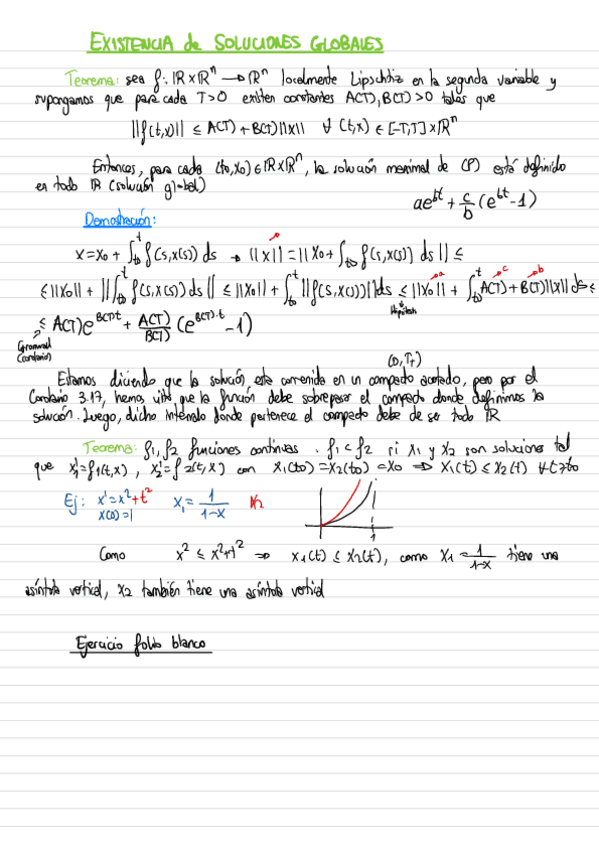 EXISTENCIA de SOLUCIONES GLOBALES
Teorema: sea f: ℝxℝⁿ → ℝⁿ localmente Lipschitz en la segunda variable y
supongamos que para cada T>0 existen constantes A(T), B(T) >0 tales que
||f(t,x)|| ≤ A(T) + B(T)||x|| ∀ (t,x) ∈ [-T,T] x ℝⁿ
Entonces, para cada (t0,x0) ∈ ℝxℝⁿ, la solución maximal de (P) está definido
en todo ℝ (solución global)
ae^{bt} + c/b (e^{bt} - 1)
Demostración:
x = x0 + ∫_{t0}^t f(s,x(s)) ds → ||x|| = ||x0 + ∫_{t0}^t f(s,x(s)) ds|| ≤
≤ ||x0|| + ||∫_{t0}^t f(s,x(s)) ds|| ≤ ||x0|| + ∫_{t0}^t ||f(s,x(s))|| ds ≤ ||x0|| + ∫_{t0}^t A(T) + B(T)||x|| ds ≤
a c b
Hipótesis
≤ A(T)e^{B(T)t} + A(T)/B(T) (e^{B(T)·t} - 1)
Gronwall
(corolario)
(0,T+)
Estamos diciendo que la solución, esta contenida en un compacto acotado, pero por el
Corolario 3.17, hemos visto que la función debe sobrepasar el compacto donde definimos la
solución. Luego, dicho intervalo donde pertenece el compacto debe de ser todo ℝ
Teorema: f1, f2 funciones continuas. f1 < f2 si x1 y x2 son soluciones tal
que x1'=f1(t,x), x2'=f2(t,x) con x1(t0)=x2(t0)=x0 ⇒ x1(t) ≤ x2(t) ∀t≥t0
Ej: x'=x²+t² x1= 1/(1-x) x2
x(0)=1
1
Como x² ≤ x²+t² ⇒ x1(t) ≤ x2(t), como x1 = 1/(1-x) tiene una
asíntota vertical, x2 también tiene una asíntota vertical
Ejercicio folio blanco